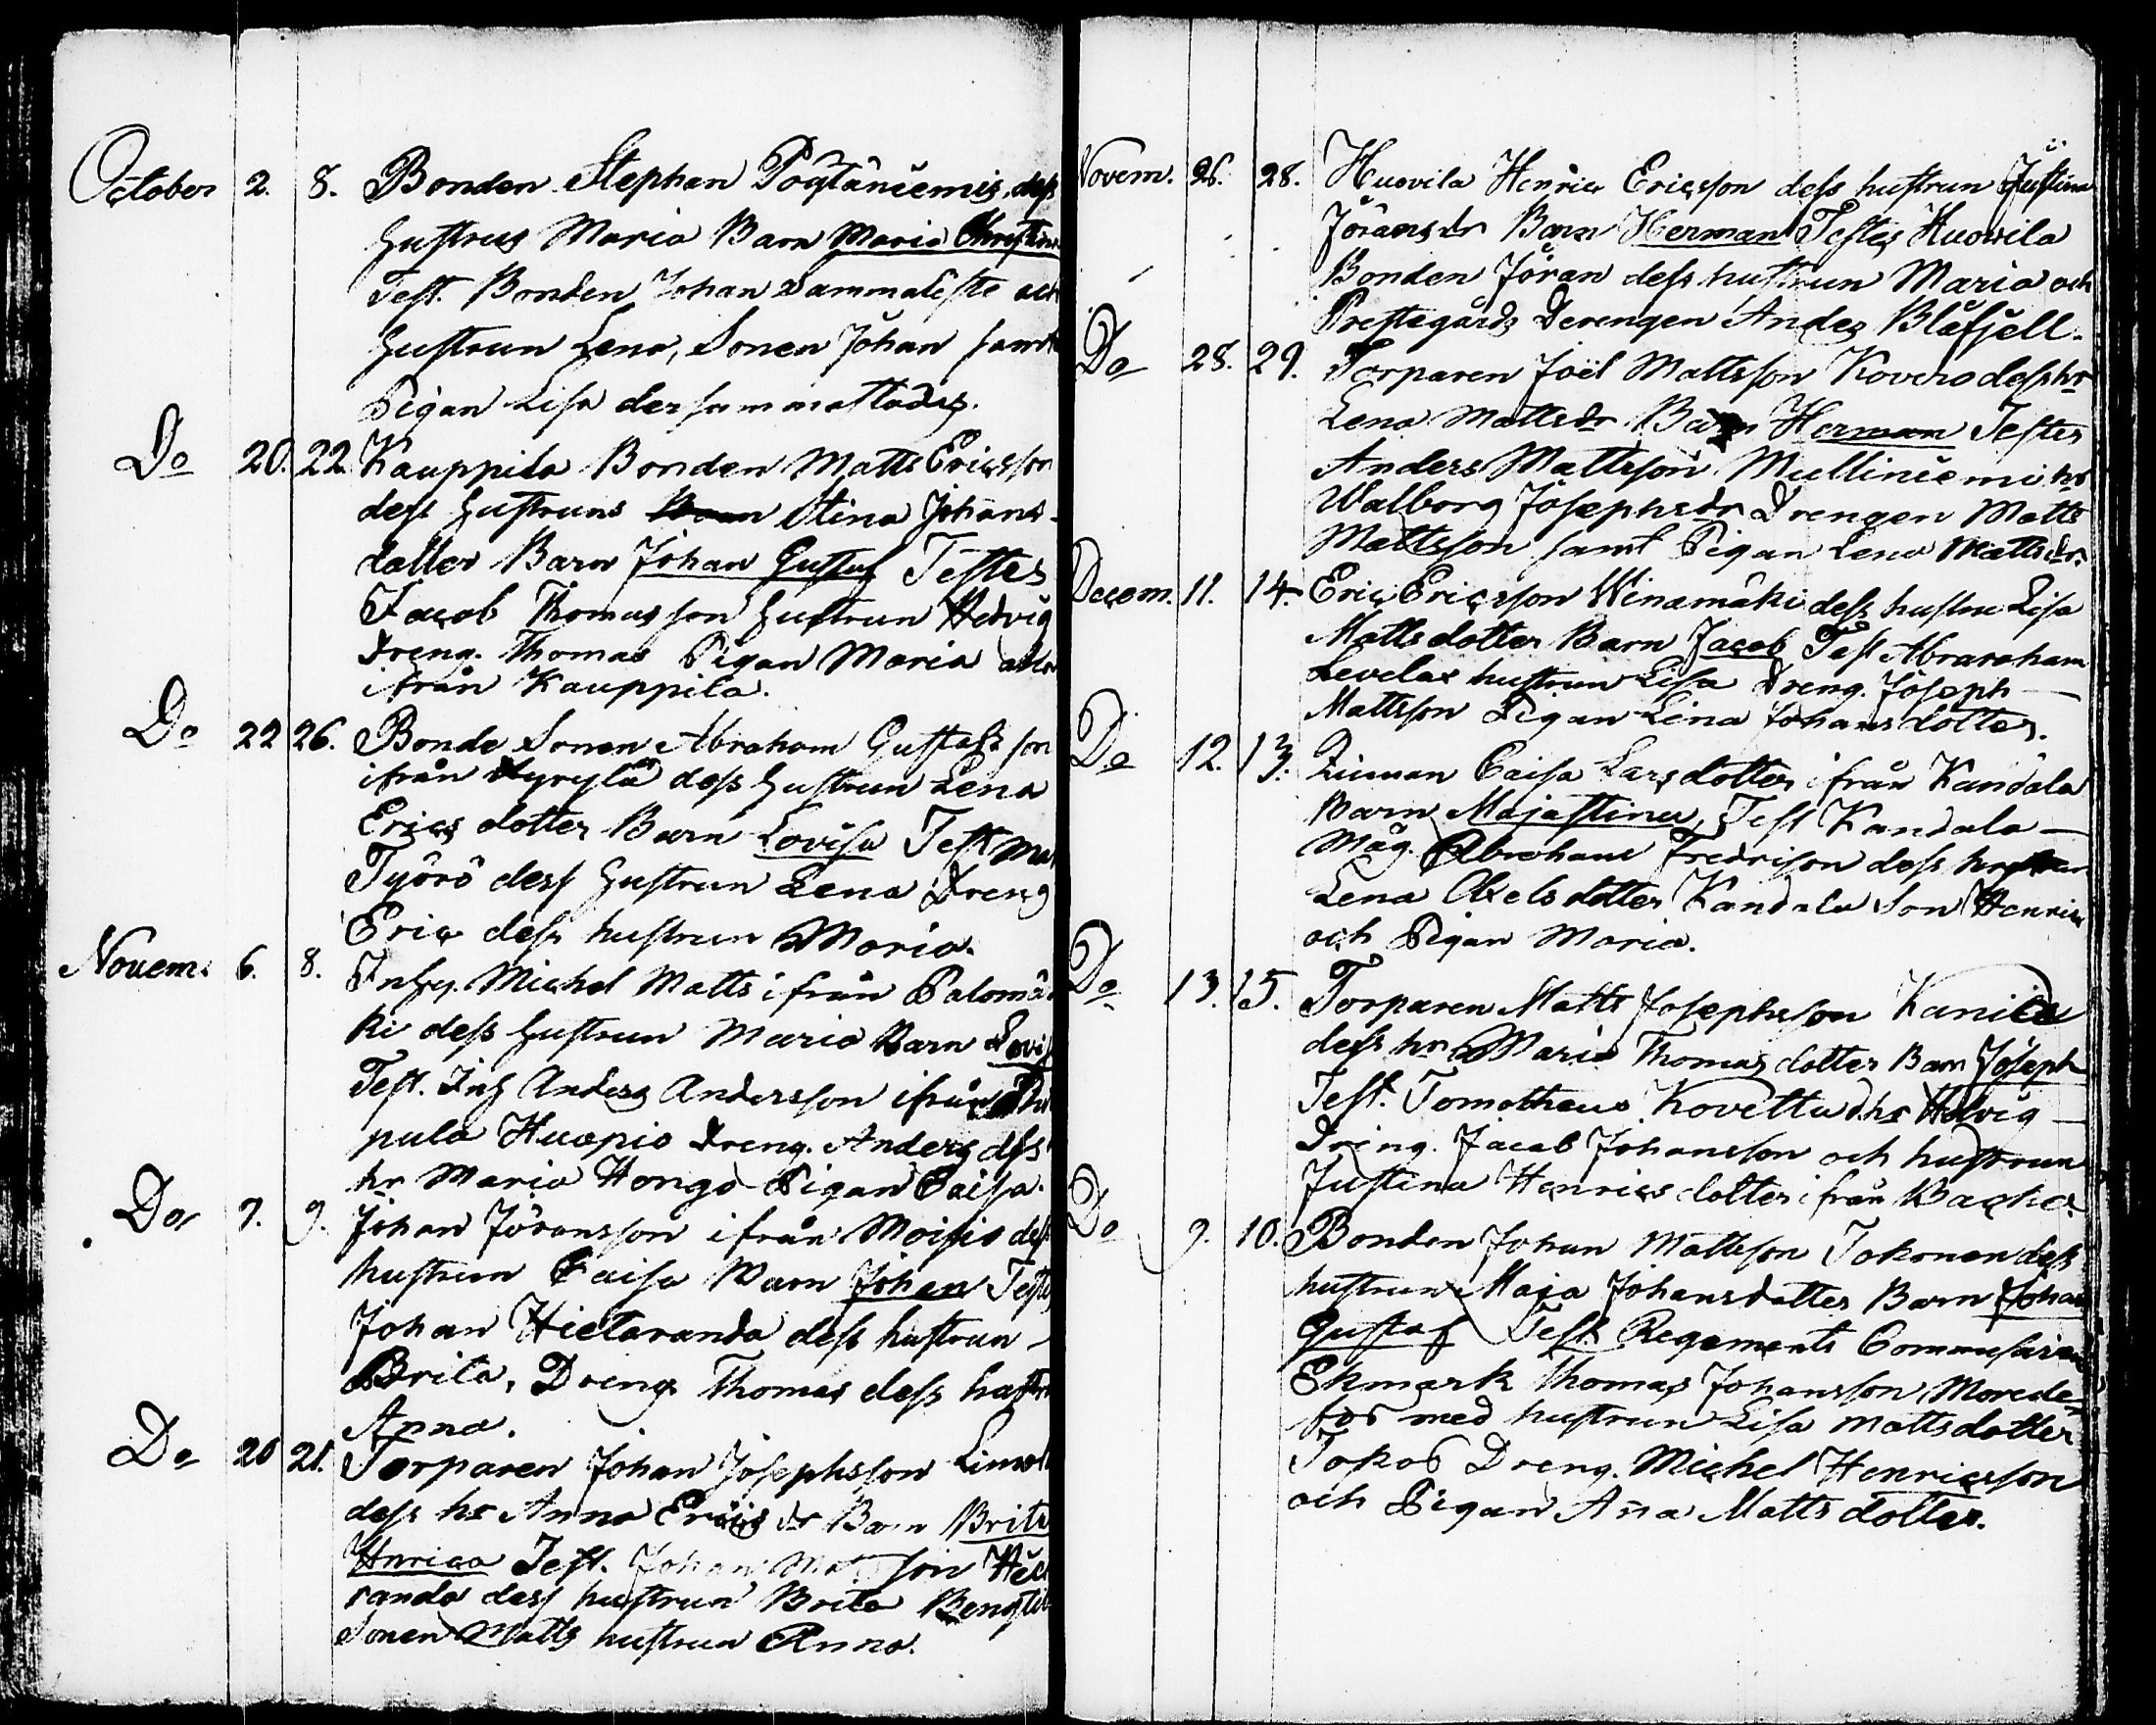 October 2. 8. Bonden Stephan dess
Hustrus Maria Barn Maria Christin
Test. Bonden Johan Sammaliste och
Hustrun Lena, Sonen Johan samt
Pigan Lisa dersammastädes.
Do 20. 22. Kauppila Bonden Matts Ericsson
dess Hustruns Stina Johans-
dotter Barn Johan Gustaf Testes
Jacob Thomasson Hustrun Hedvig
Dreng. Thomas Pigan Maria
ifrån Kauppila.
Do 22 26. Bonde Sonen Abraham Gustafsson
ifrån Kyrylä dess Hustrun Lena
Erics dotter Barn Lovisa Test
Työrö dess Hustrun Lena Dreng
Eric dess hustrun Maria.
Novem: 6. 8. Inhys. Michel Matts ifrån Palomä
ki dess Hustrun Maria Barn Lovis
Test. Inh Anders Andersson ifrån
pula Huopio Dreng. Anders dess
hr Maria Hongo Pigan Caisa.
Do 7. 9. Johan Jöransson ifrån Moisio dess
hustrun Caisa Barn Johan Testes
Johan Hietaranda dess hustrun
Brita, Dreng Thomas dess hustr
Anna.
Do 20 21. Torparen Johan Josephsson
dess hr Anna Erics dr Barn Brita
Henrica Test. Johan Matsson Hiet
randa dess hustrun Brita
Sonen Matts hustrun Anna.
Novem. 26. 28. Huovila Henric Ericsson dess hustrun Justina
Jöransdr Barn Herman Testes Huovila
Bonden Jöran dess hustrun Maria och
Prestegårds Derengen Andes Blåfjell.
Do 28. 29. Torparen Joël Mattsson Kovero dess hr
Lena Mattsdr Barn Herman Testes
Anders Mattsson Mulliniemi hr
Walborg Josephsdr Drengen Matts
Mattsson samt Pigan Lena Mattsdr.
Decem. 11. 14. Eric Ericsson Winamäki dess hustru Lisa
Mattsdotter Barn Jacob Test Abraraham
Levelax hustrun Lisa Dreng. Joseph
Mattsson Pigan Lena Johansdotter.
Do 12. 13. Qvinnan Caisa Larsdotter ifrån Kandola
Barn Majastina, Test Kandola
Måg Abraham Fredrison dess hustrun
Lena Axelsdotter Kandola Son Henric
och Pigan Maria.
Do 13. 15. Torparen Matts Josephsson
dess hr Maria Thomas dotter Barn Joseph
Test. Tomotheus dhr Hedvig
Dring. Jacob Johansson och hustrun
Justina Henrics dotter ifrån
Do 9. 10. Bonden Johan Mattsson Tokonen dess
hustrun Maja Johansdotter Barn Johan
Gustaf Test. Regements Commissarien
Ekmark Thomas Johansson
med hustrun Lisa Mattsdotter
Dreng. Michel Henricsson
och Pigan Aña Mattsdotter.